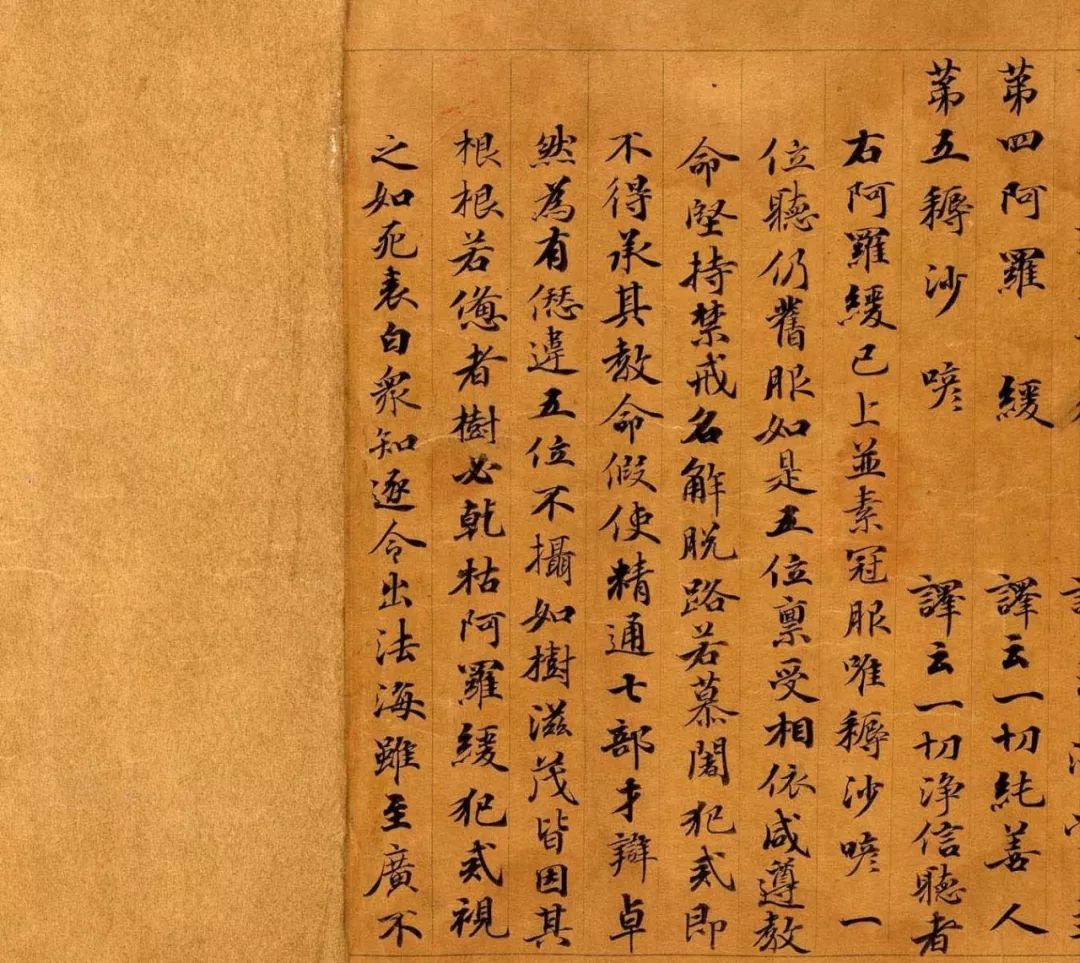 苐四阿羅緩 譯云一切純善人
苐五耨沙喭 譯云一切净信聽者
右阿羅緩已上並素冠服唯耨沙喭一
位聽仍舊服如是五位禀受相依咸遵教
命堅持禁戒名解脱路若慕闍犯戒即
不得承其教命假使精通七部才辯卓
然為有僁違五位不攝如樹滋茂皆因其
根根若憊者樹必乹枯阿羅緩犯戒視
之如死表白衆知逐令出法海雖至廣不